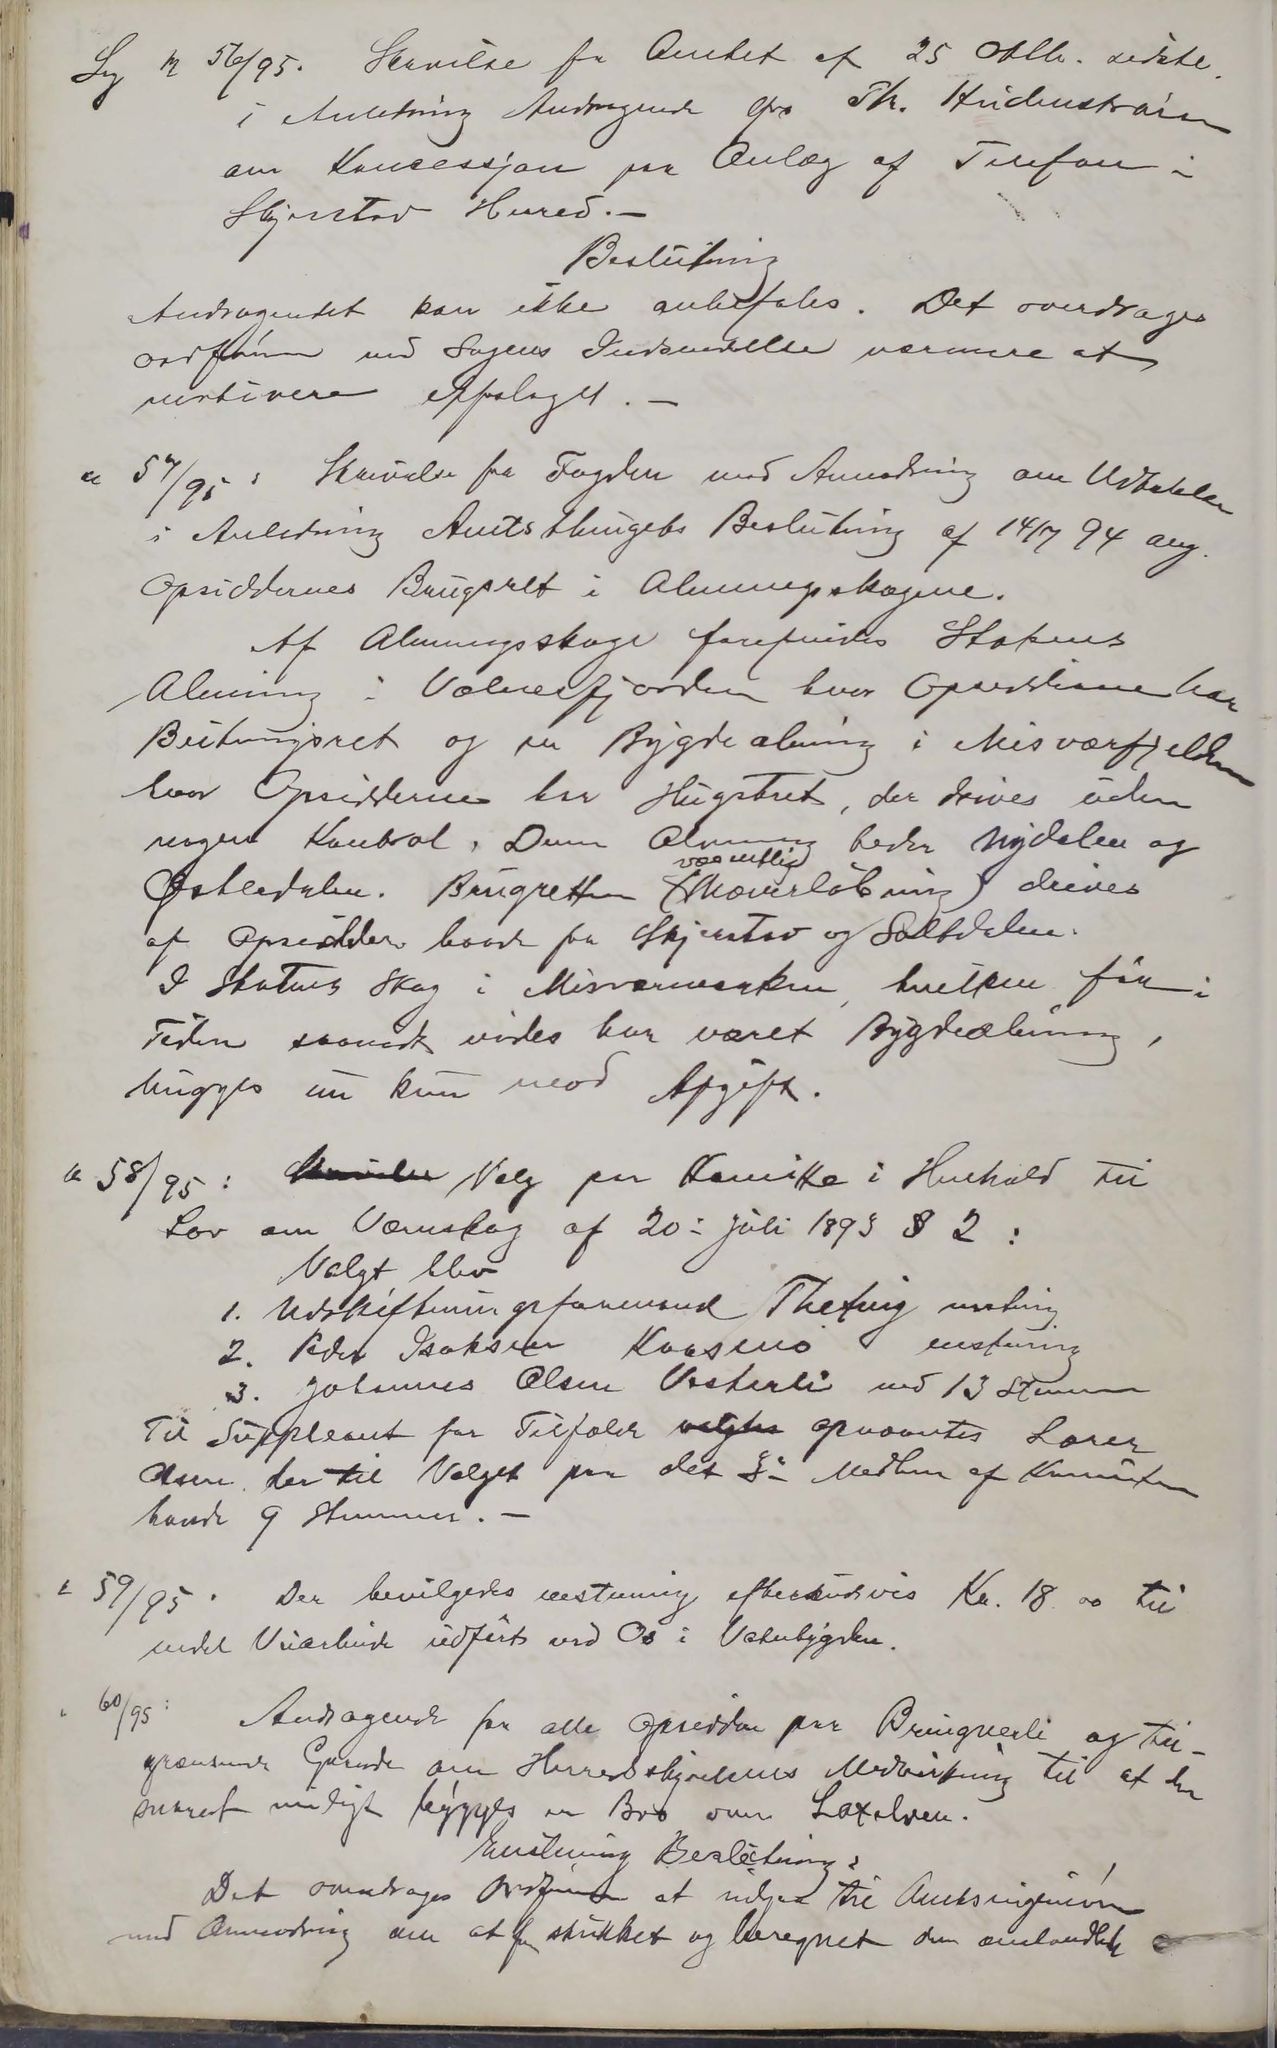 Sag № 56/95. Skrivelse fra Amtet af 25 Oktb. sidstl.
i Anledning Andragende fra Th.
om Koncessjon paa Anlæg af Telefon i
Skjerstad Herred. —
Beslutning
Andragendet kan ikke anbefales. Det overdrages
ordføreren ved Sagens Indsendelse nærmere at
motivere Afslaget. —
" 57/95: Skrivelse fra Fogden med Anmodning om Udtalelse
i Anledning Amtsthingets Beslutning af 14/7 94 ang.
Opsiddernes Brugsret i Almningsskogene.
Af Almningsskoge forefindes Statens
Almning i Valnesfjorden hvor Opsidderne har
Beitningsret og en Bygdealmning i Misværfjelden
hvor Opsidderne har Hugstret, der drives uden
nogen Kontrol. Denne Almning heder Nydalen og
Østerdalen. Brugretten (væsentlig Næverløbning) drives
af Opsiddere baade fra Skjerstad og Saltdalen.
I Statens Skog i Misværmarken, hvilken før i
Tiden saavidt vides har været Bygdealmning,
hugges nu kun mod Afgift.
" 58/95: Skrivelse Valg paa Komitte i Henhold til
Lov om Værnskog af 20: Juli 1893 § 2:
Valgt blev
1. Udskiftningsformand Thetting enstemig
2. Peder Isaksen Kvasmo enstemig
3. Johannes Olsen Vesterli med 13 Stemmer
Til Suppleant for Tilfælde valgtes opnævntes Lærer
Olsen der til Valget paa det 3die Medlem af Komiteen
havde 9 Stemmer. —
" 59/95. Der bevilgedes enstemig efterskudsvis Kr. 18.00 til
endel Veiarbeide udført ved Os i Vatnbygden.
" 60/95: Andragende fra alle Opsiddere paa Bringsli og til-
grænsende Gaarde om Herredsstyrelsens Medvirkning til at der
snarest muligt bygges en Bro over Laxelven.
Enstemig Beslutning:
Det overdrages Ordføreren at udgaa til Amtsingeniøren
med Anmodning om at faa stukket og beregnet den omhandlede